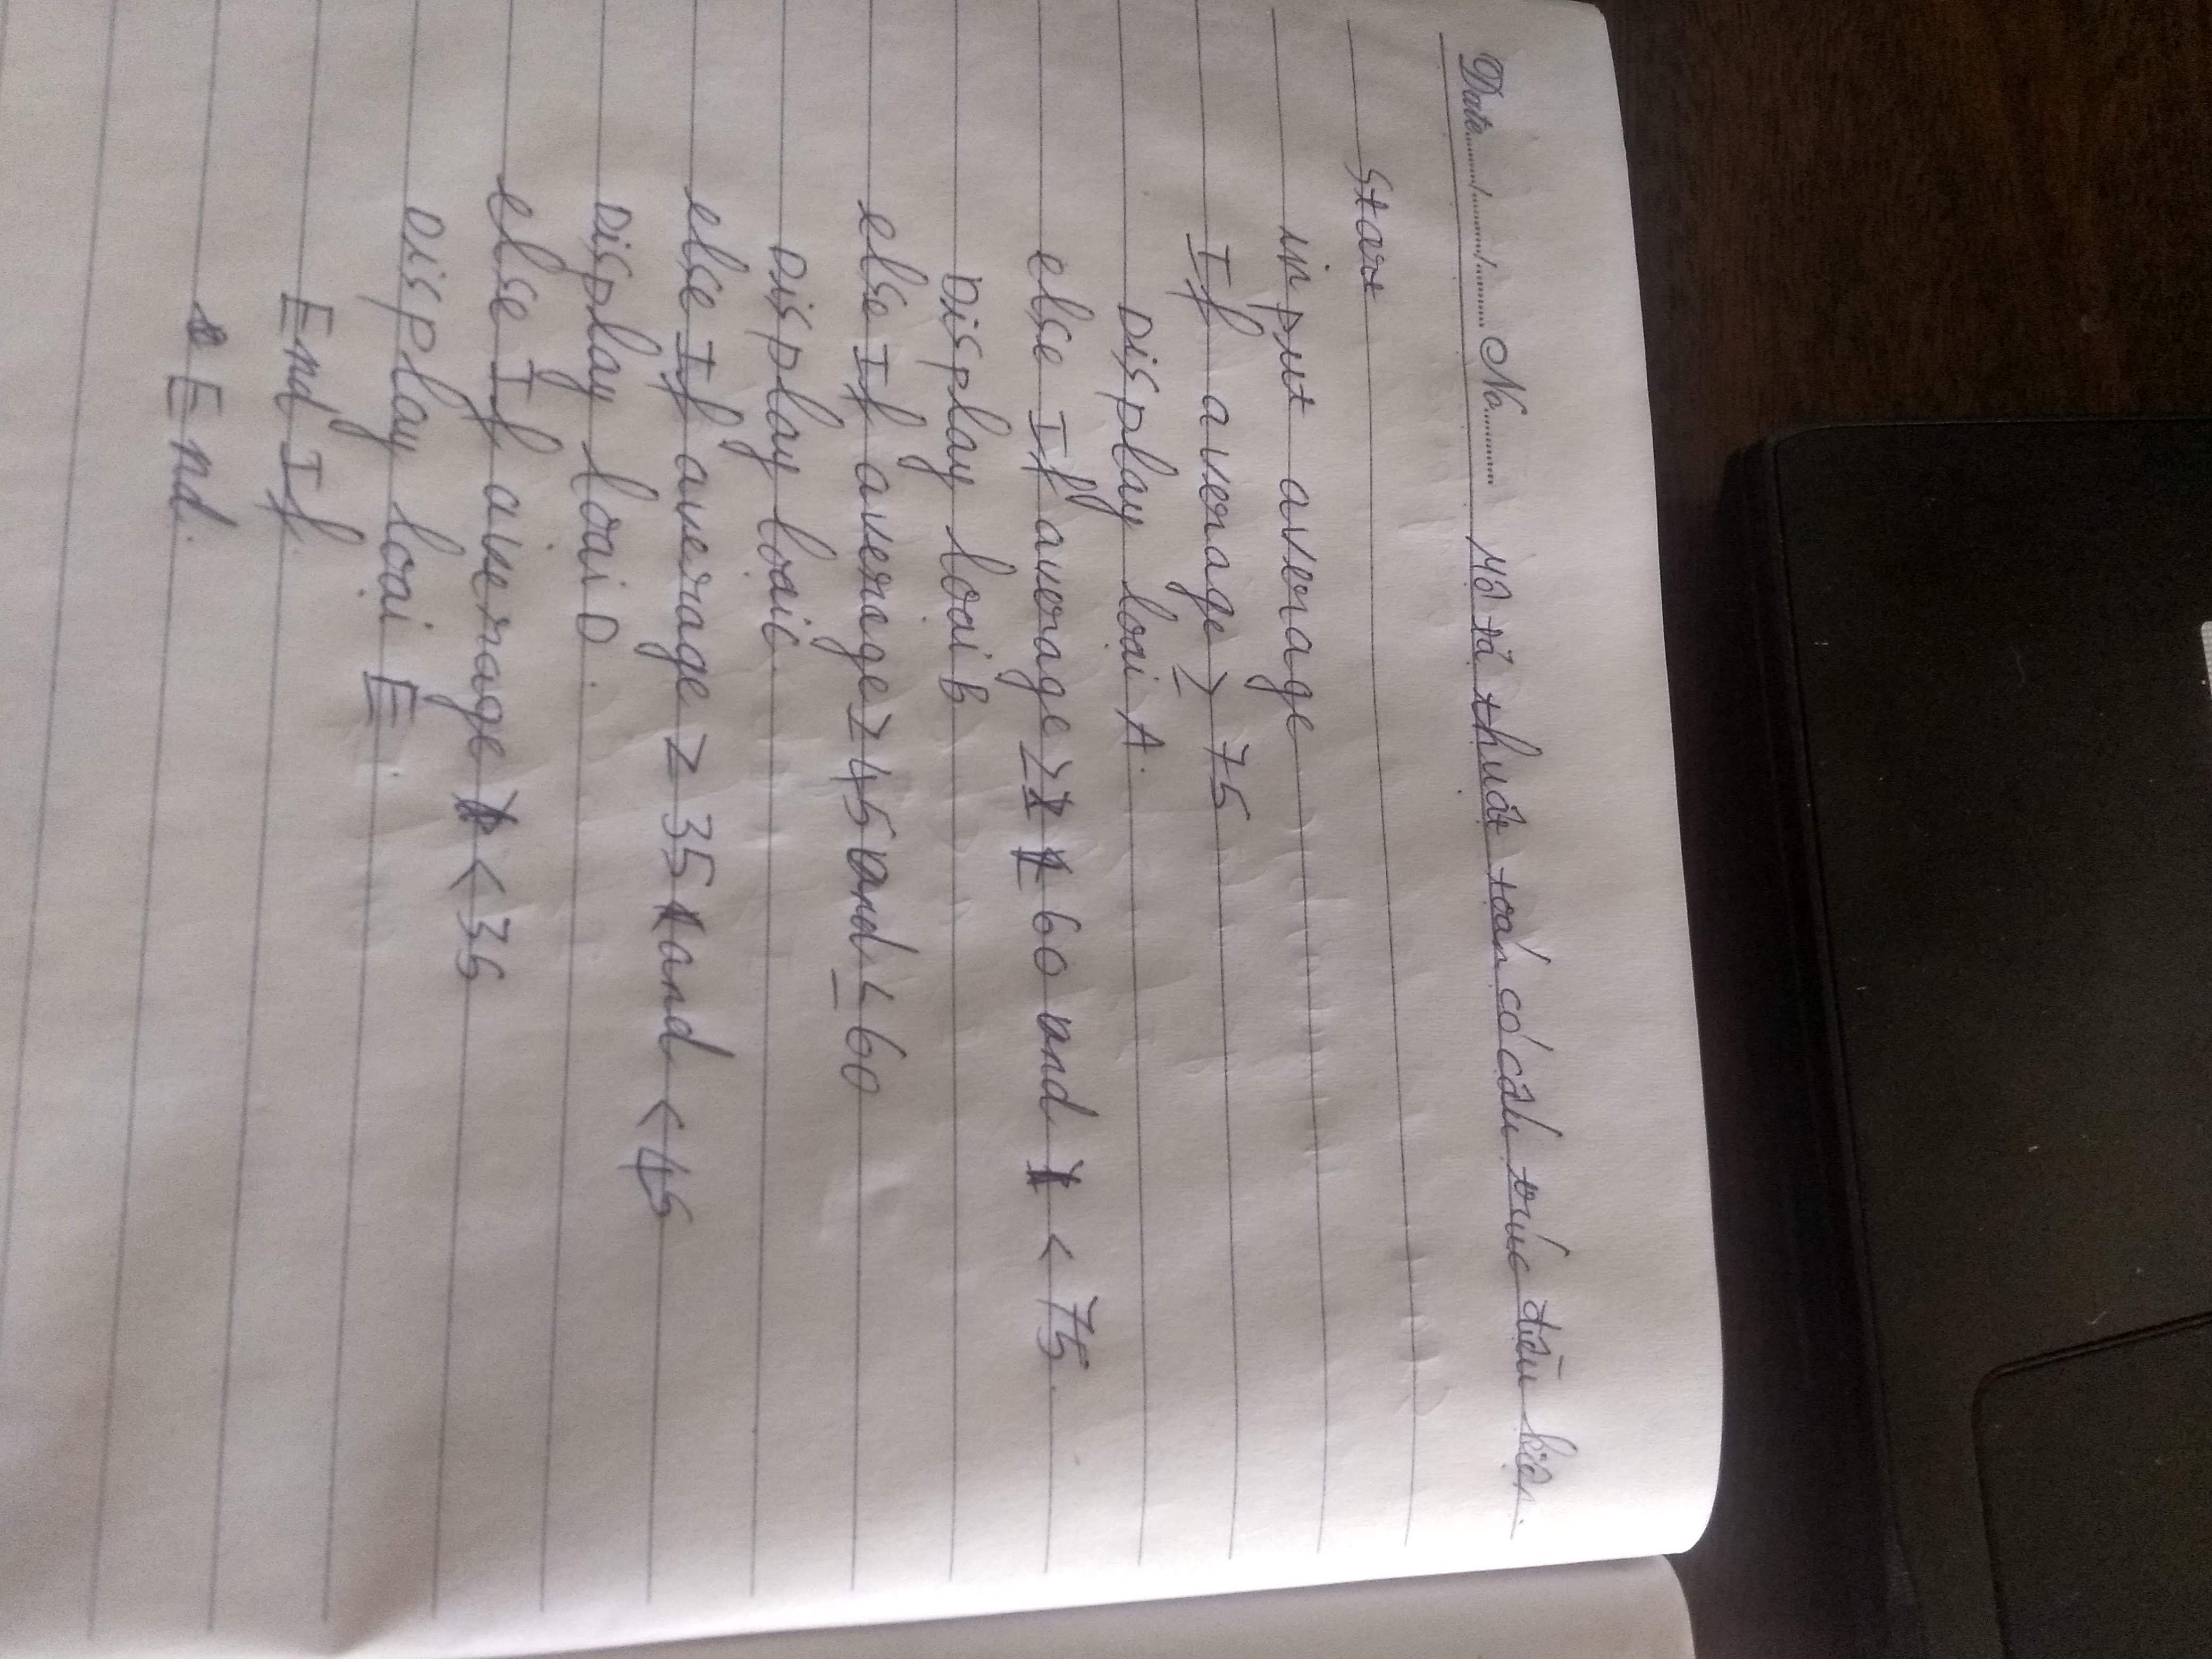 Date......./......./....... No........... Mô tả thuật toán có cấu trúc điều kiện.
Start
input average
If average ≥ 75
Display loại A.
else If average ≥ 60 and < 75.
Display loại B
else If average ≥ 45 and < 60
Display loại C.
else If average ≥ 35 and < 45
Display loại D.
else If average < 35
Display loại E.
End If.
End.